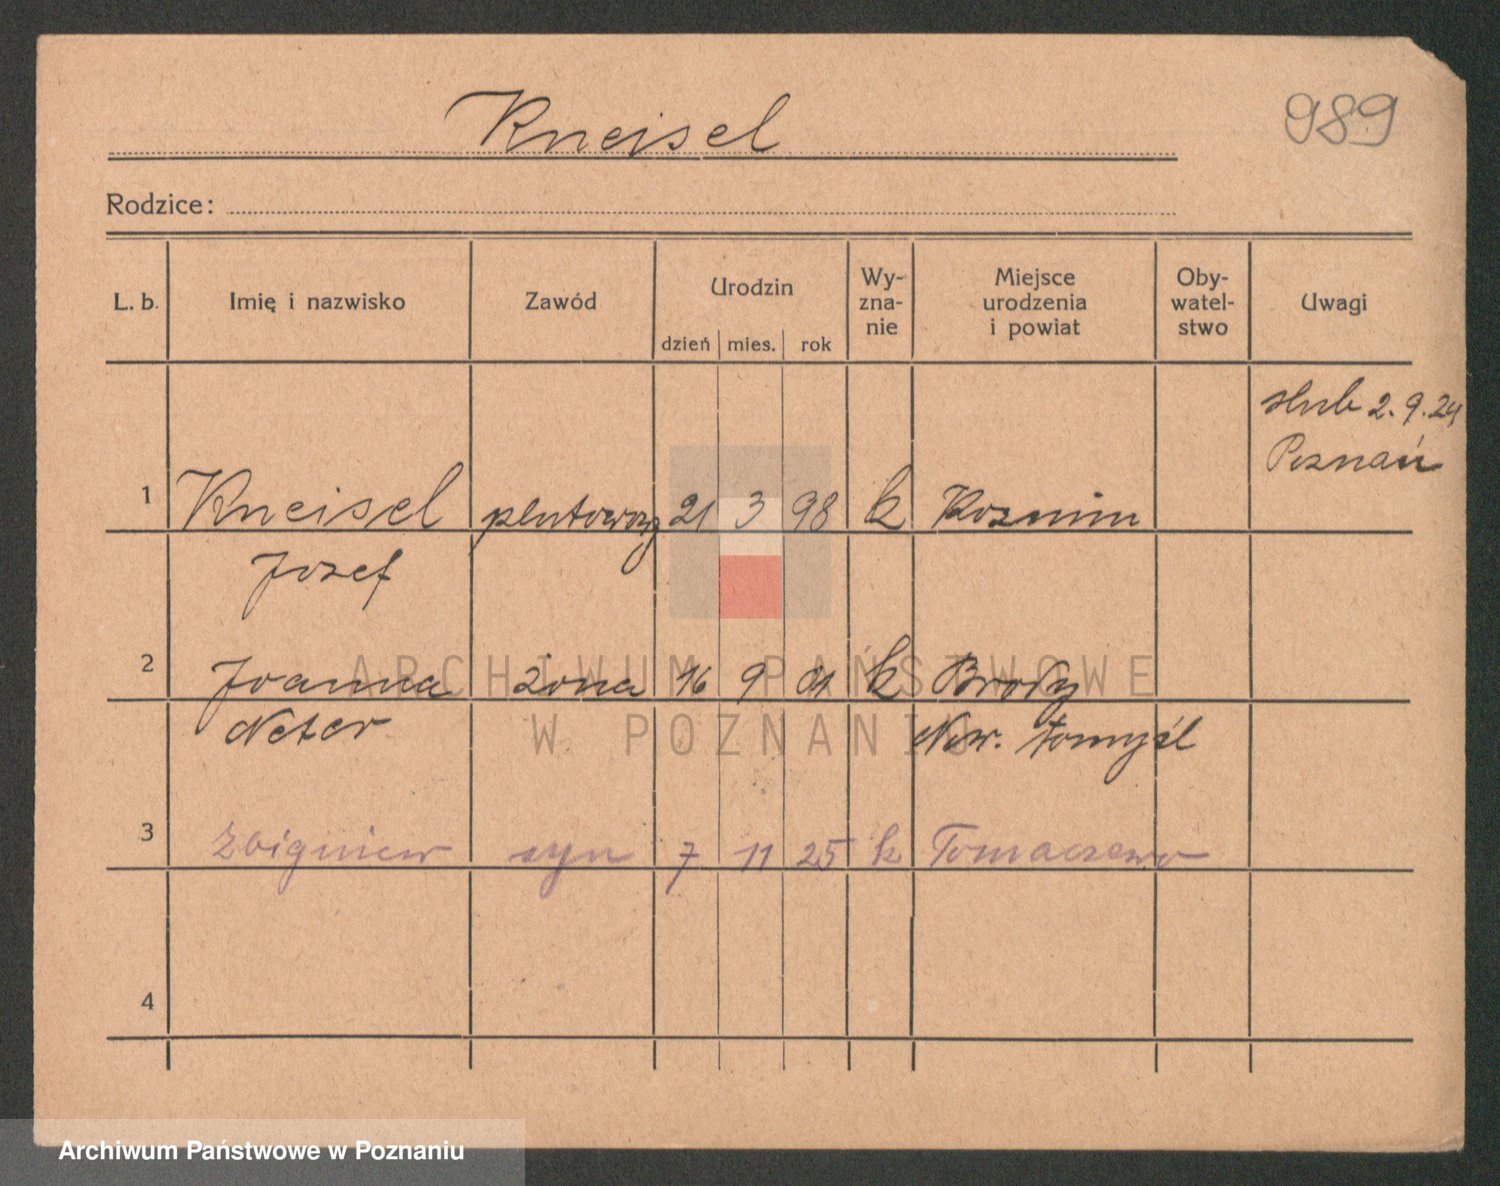 Kneisel
989
Rodzice:
L. b. Imię i nazwisko Zawód Urodzin dzień mies. rok Wy-zna-nie Miejsce urodzenia i powiat Oby-watel-stwo Uwagi
ślub 2.9.24
Poznań
1 Kneisel plutonowy 21 3 98 k Koźmin
Józef
2 Joanna żona 16 9 01 k Brody
Neter Now. Tomyśl
3 Zbigniew syn 7 11 25 k
4
ARCHIWUM PAŃSTWOWE
W POZNANIU
Archiwum Państwowe w Poznaniu